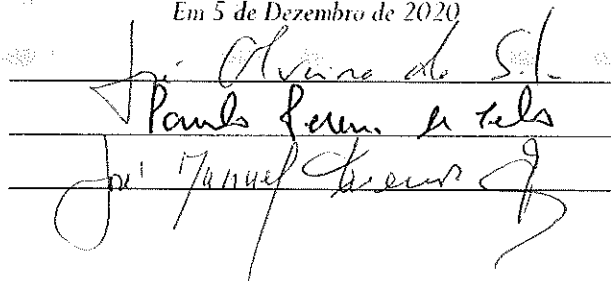 Em 5 de Dezembro de 2020
José Oliveira da Silva
Paulo
José Manuel